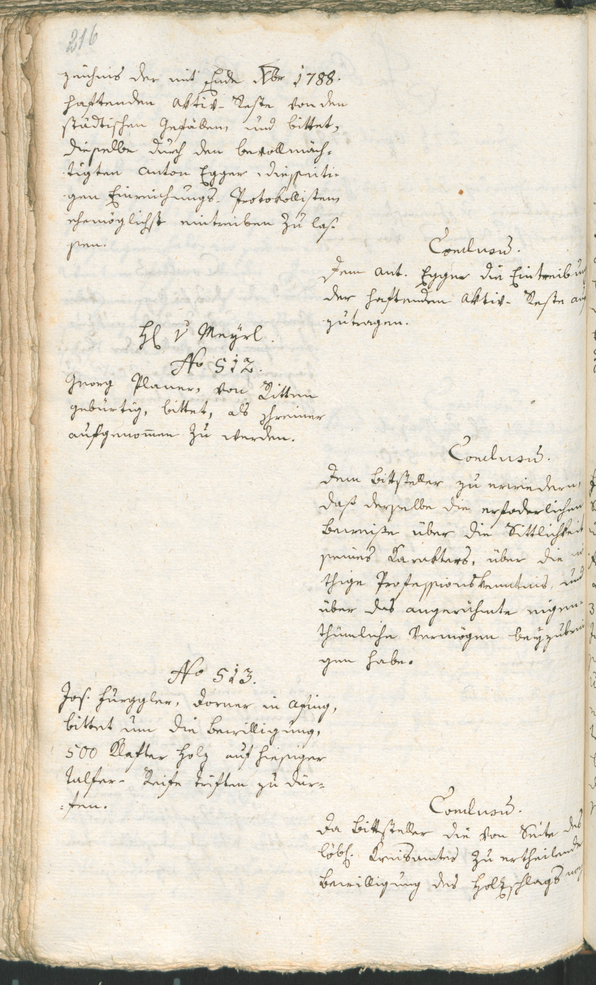 216
zeichnis der mit Ende Xbr 1788.
haftenden Aktiv-Reste von den
städtischen Gefällen, und bittet,
dieselbe durch den bevollmäch-
tigten Anton Egger, diesseiti-
gen Einreichungs-Protokollisten
ehemöglichst eintreiben zu las-
sen.
Conclusum.
Dem Ant. Egger die Eintreibung
der haftenden Aktiv-Reste auf
zutragen.
H. v Meyrl.
No 512.
Georg Planer, von Ritten
gebürtig, bittet, als Schreiner
aufgenommen zu werden.
Conclusum.
Dem Bittsteller zu erwiedern,
daß derselbe die erforderlichen
Beweise über die Sittlichkeit
seines Karakters, über die nö
thige Professionskenntnis, und
über das angerühmte eigen-
thümliche Vermögen beyzubrin
gen habe.
No 513.
Jos. Hürggler, Dorner in Afing,
bittet um die Bewilligung,
500 Klafter Holz auf hiesiger
Talfer-Reife triften zu dür-
fen.
Conclusum.
Da Bittsteller die von Seite des
löbl. Kreisamtes zu ertheilende
Bewilligung des Holzschlags